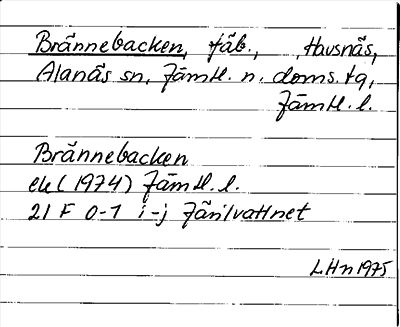 Brännebacken, fäb., Havsnäs,
Alanäs sn, Jämtl. n. doms. tg,
Jämtl. l.
Brännebacken
ek (1974) Jämtl. l.
21 F 0-1 i-j Järilvattnet
LHn 1975